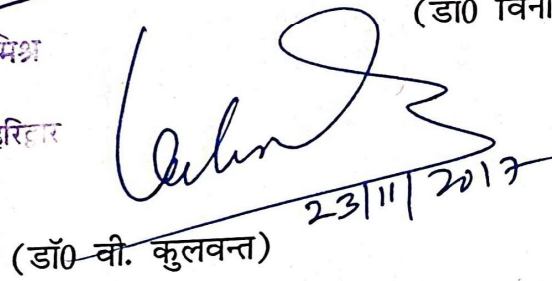 (डा0 विना
मिश्र
हरिद्वार
23/11/2017
(डॉ0 वी. कुलवन्त)